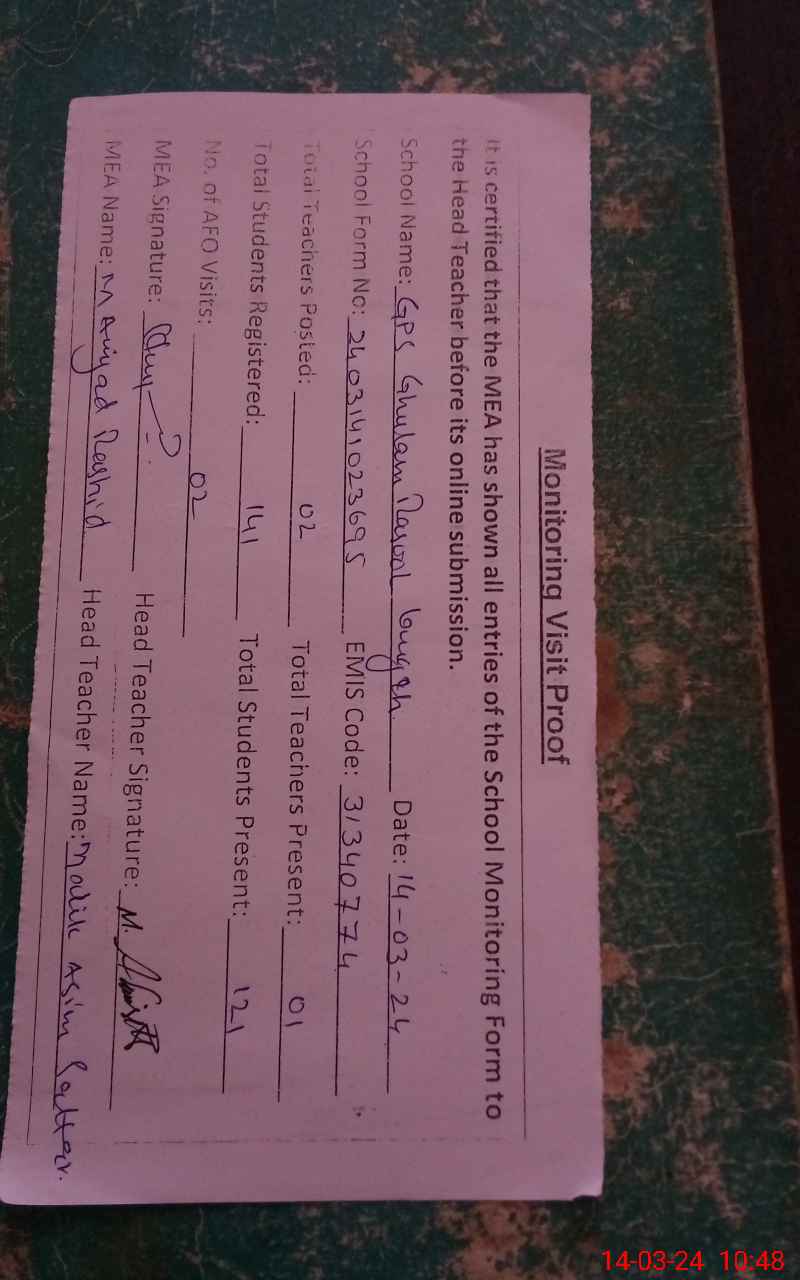 Monitoring Visit Proof
It is certified that the MEA has shown all entries of the School Monitoring Form to
the Head Teacher before its online submission.
School Name: GPS Ghulam Rasool Date: 14-03-24
School Form No: 2403141023695 EMIS Code: 31340774
Total Teachers Posted: 02 Total Teachers Present: 01
Total Students Registered: 141 Total Students Present: 121
No. of AFO Visits: 02
MEA Signature: Head Teacher Signature:
MEA Name: M Rashid Head Teacher Name: Malik Asim Sattar.
14-03-24 10:48